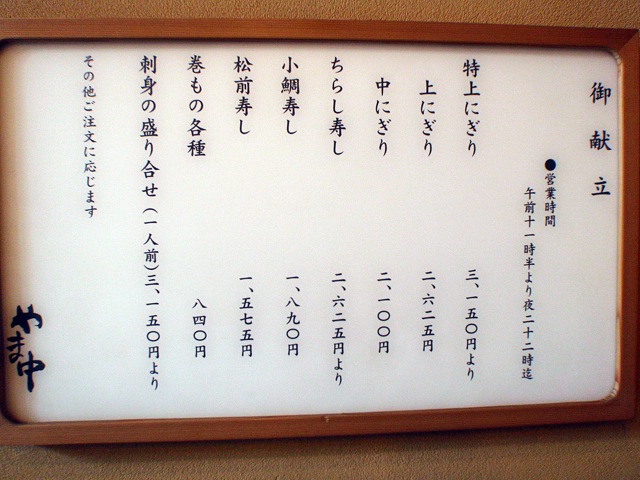 御献立
●営業時間
午前十一時半より夜二十二時迄
特上にぎり 三、一五〇円より
上にぎり 二、六二五円
中にぎり 二、一〇〇円
ちらし寿し 二、六二五円より
小鯛寿し 一、八九〇円
松前寿し 一、五七五円
巻もの各種 八四〇円
刺身の盛り合せ(一人前)三、一五〇円より
その他ご注文に応じます
やま中